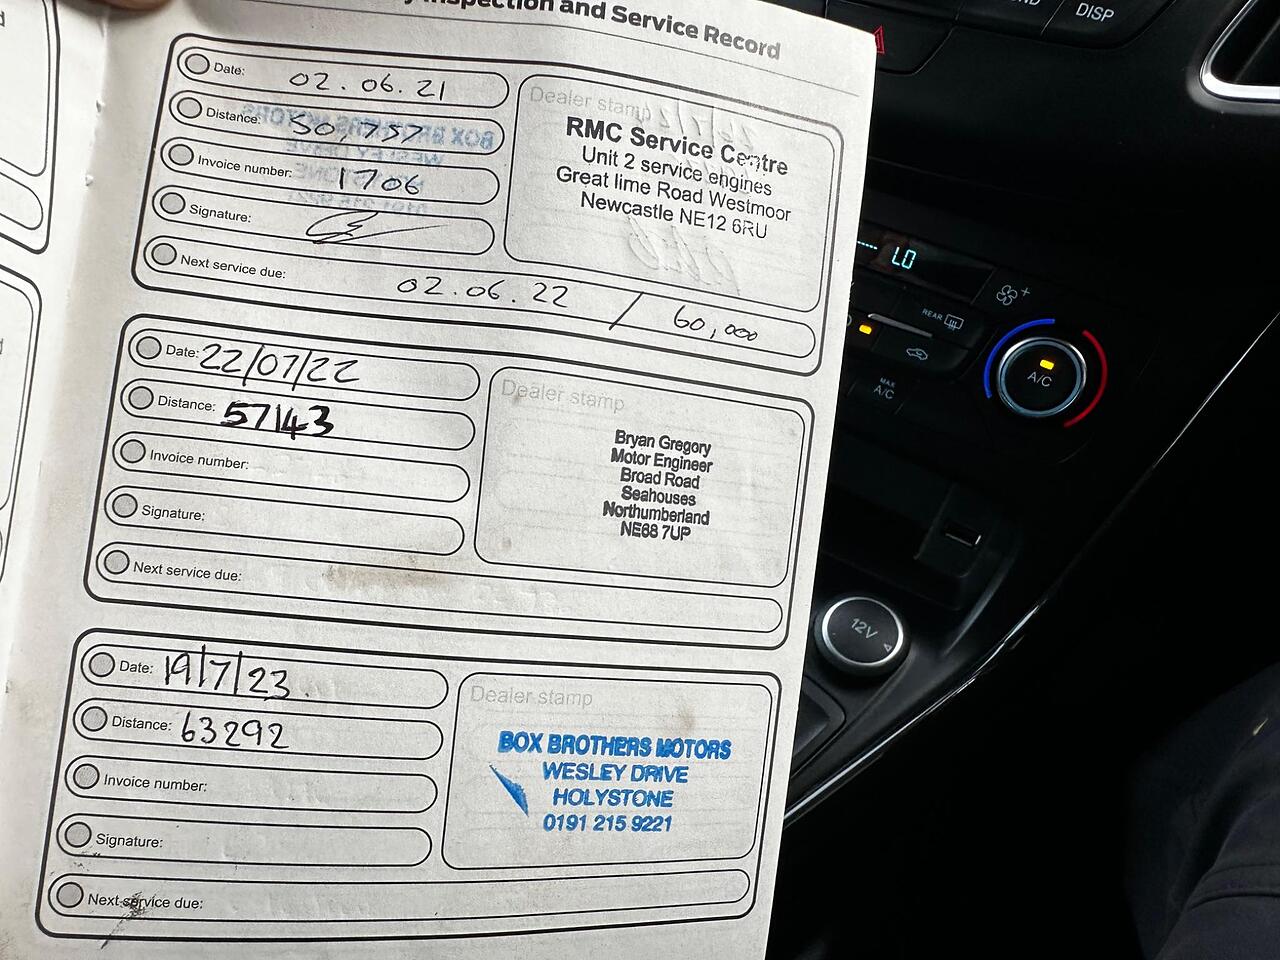 Inspection and Service Record
Date: 02.06.21
Distance: 50,757
Invoice number: 1706
Signature:
Next service due: 02.06.22 / 60,000
Dealer stamp
RMC Service Centre
Unit 2 service engines
Great lime Road Westmoor
Newcastle NE12 6RU
Date: 22/07/22
Distance: 57143
Invoice number:
Signature:
Next service due:
Dealer stamp
Bryan Gregory
Motor Engineer
Broad Road
Seahouses
Northumberland
NE68 7UP
Date: 19/7/23.
Distance: 63292
Invoice number:
Signature:
Next service due:
Dealer stamp
BOX BROTHERS MOTORS
WESLEY DRIVE
HOLYSTONE
0191 215 9221
DISP
LO
REAR
MAX
A/C
A/C
12V